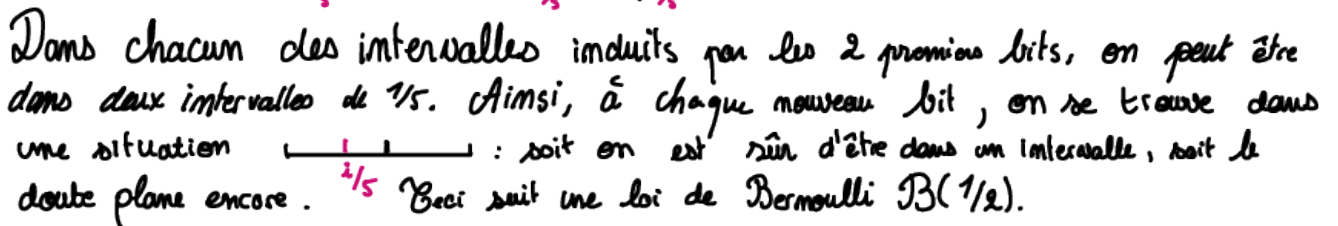 Dans chacun des intervalles induits par les 2 premiers bits, on peut être
dans deux intervalles de 1/5. Ainsi, à chaque nouveau bit, on se trouve dans
une situation : soit on est sûr d'être dans un intervalle, soit le
doute plane encore. i/5 Ceci suit une loi de Bernoulli B(1/2).